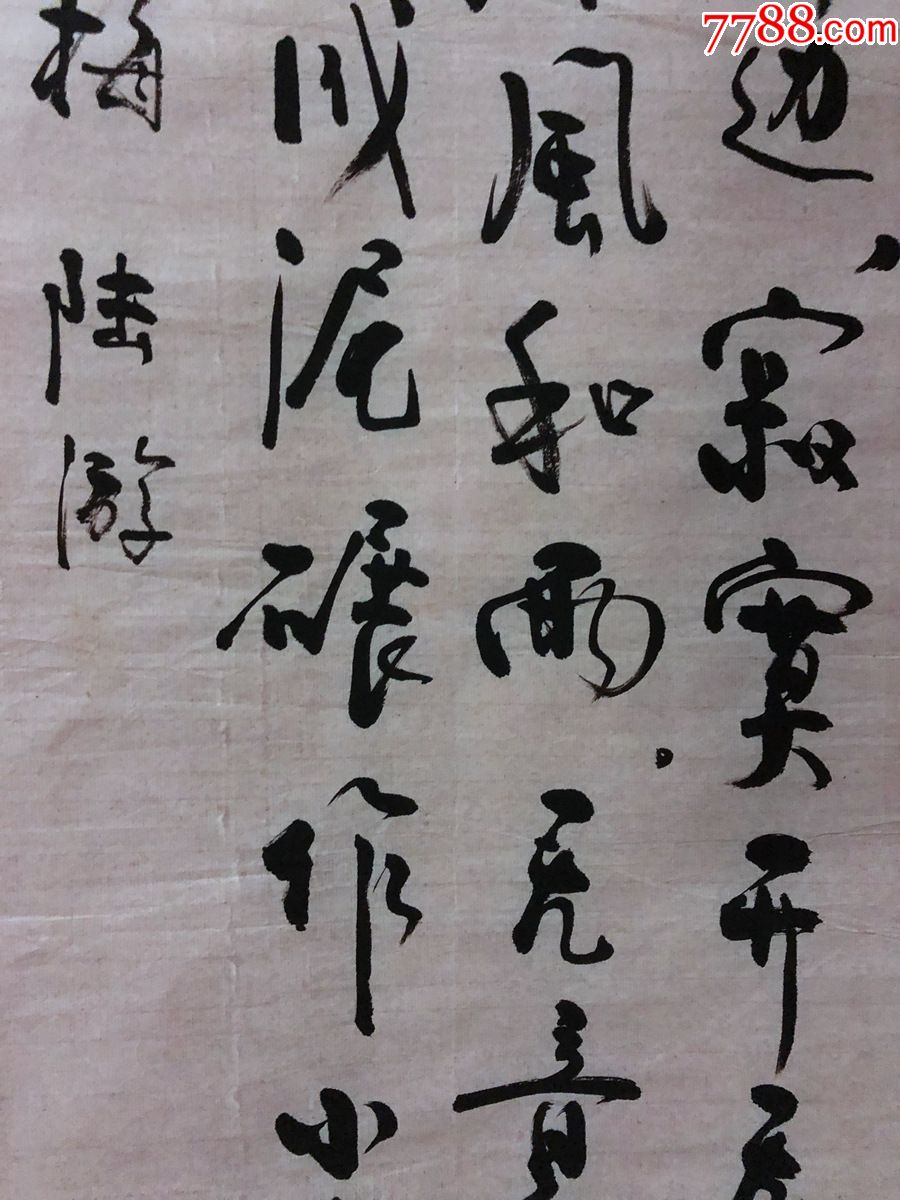 7788.com
边、寂寞开无
風和雨。无意
成泥碾作尘
梅 陆游